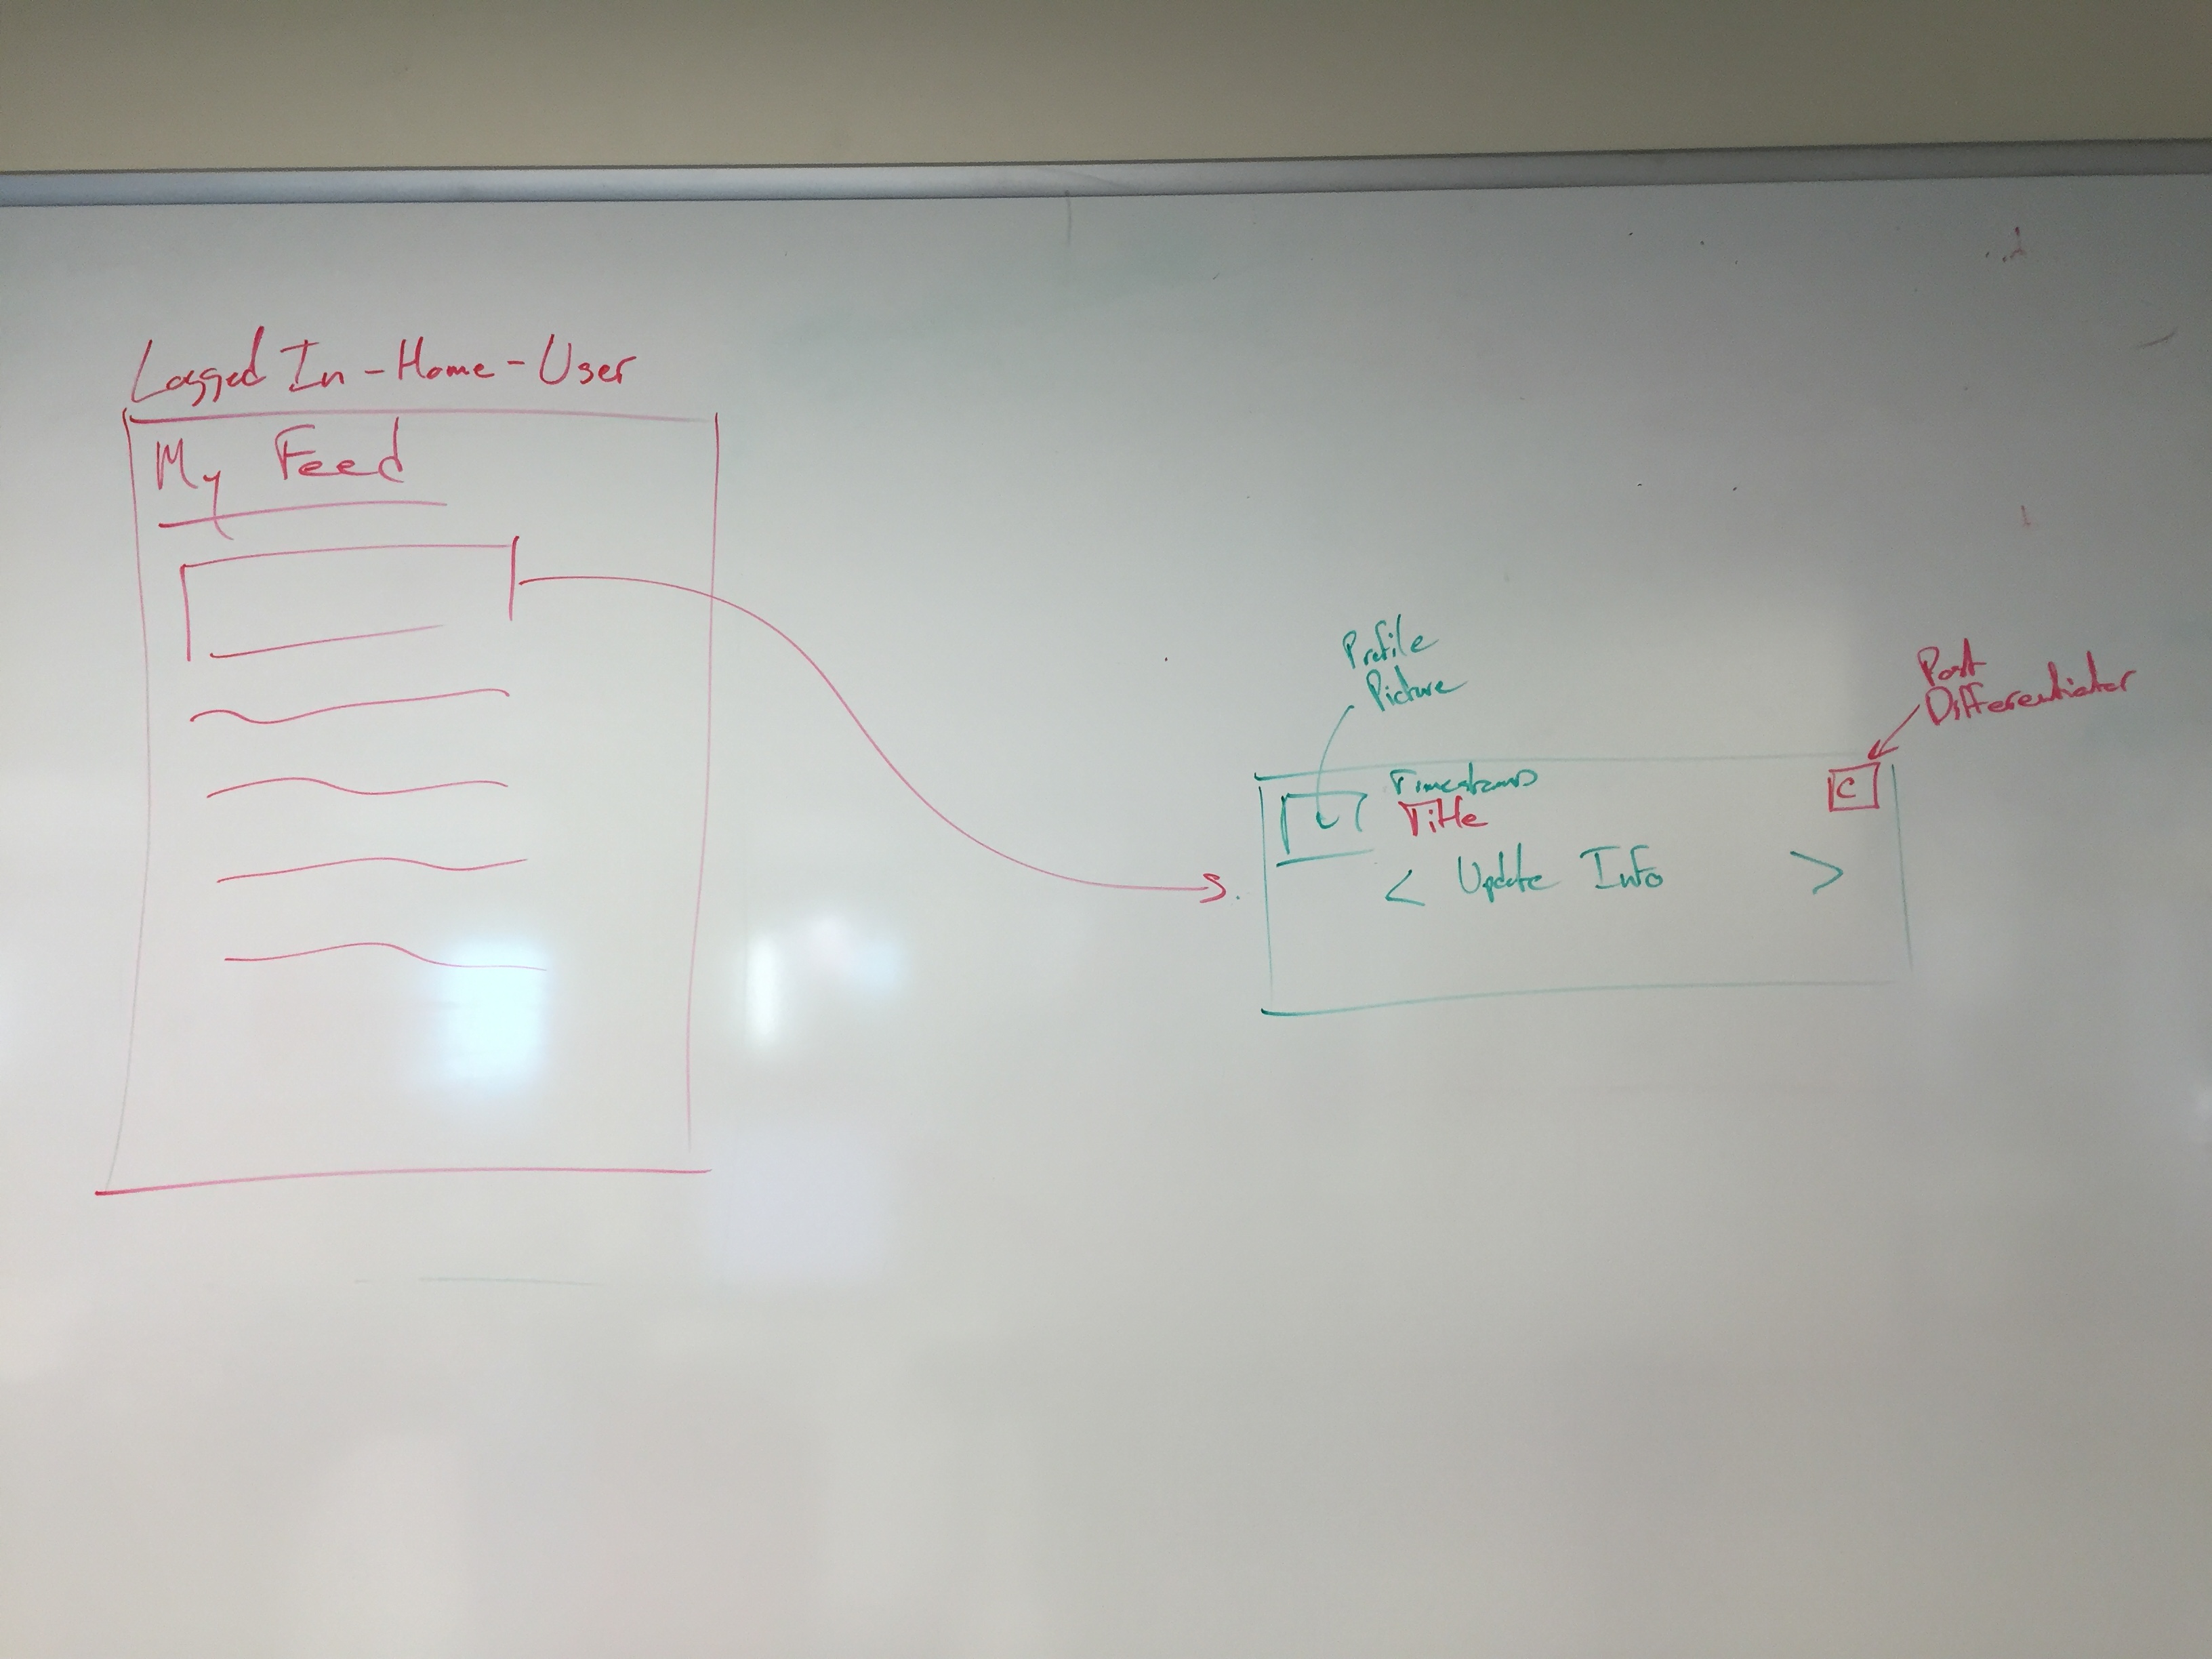 Logged In - Home - User
My Feed
Profile
Picture
Post
Differentiator
Timestamp
Title
C
< Update Info >